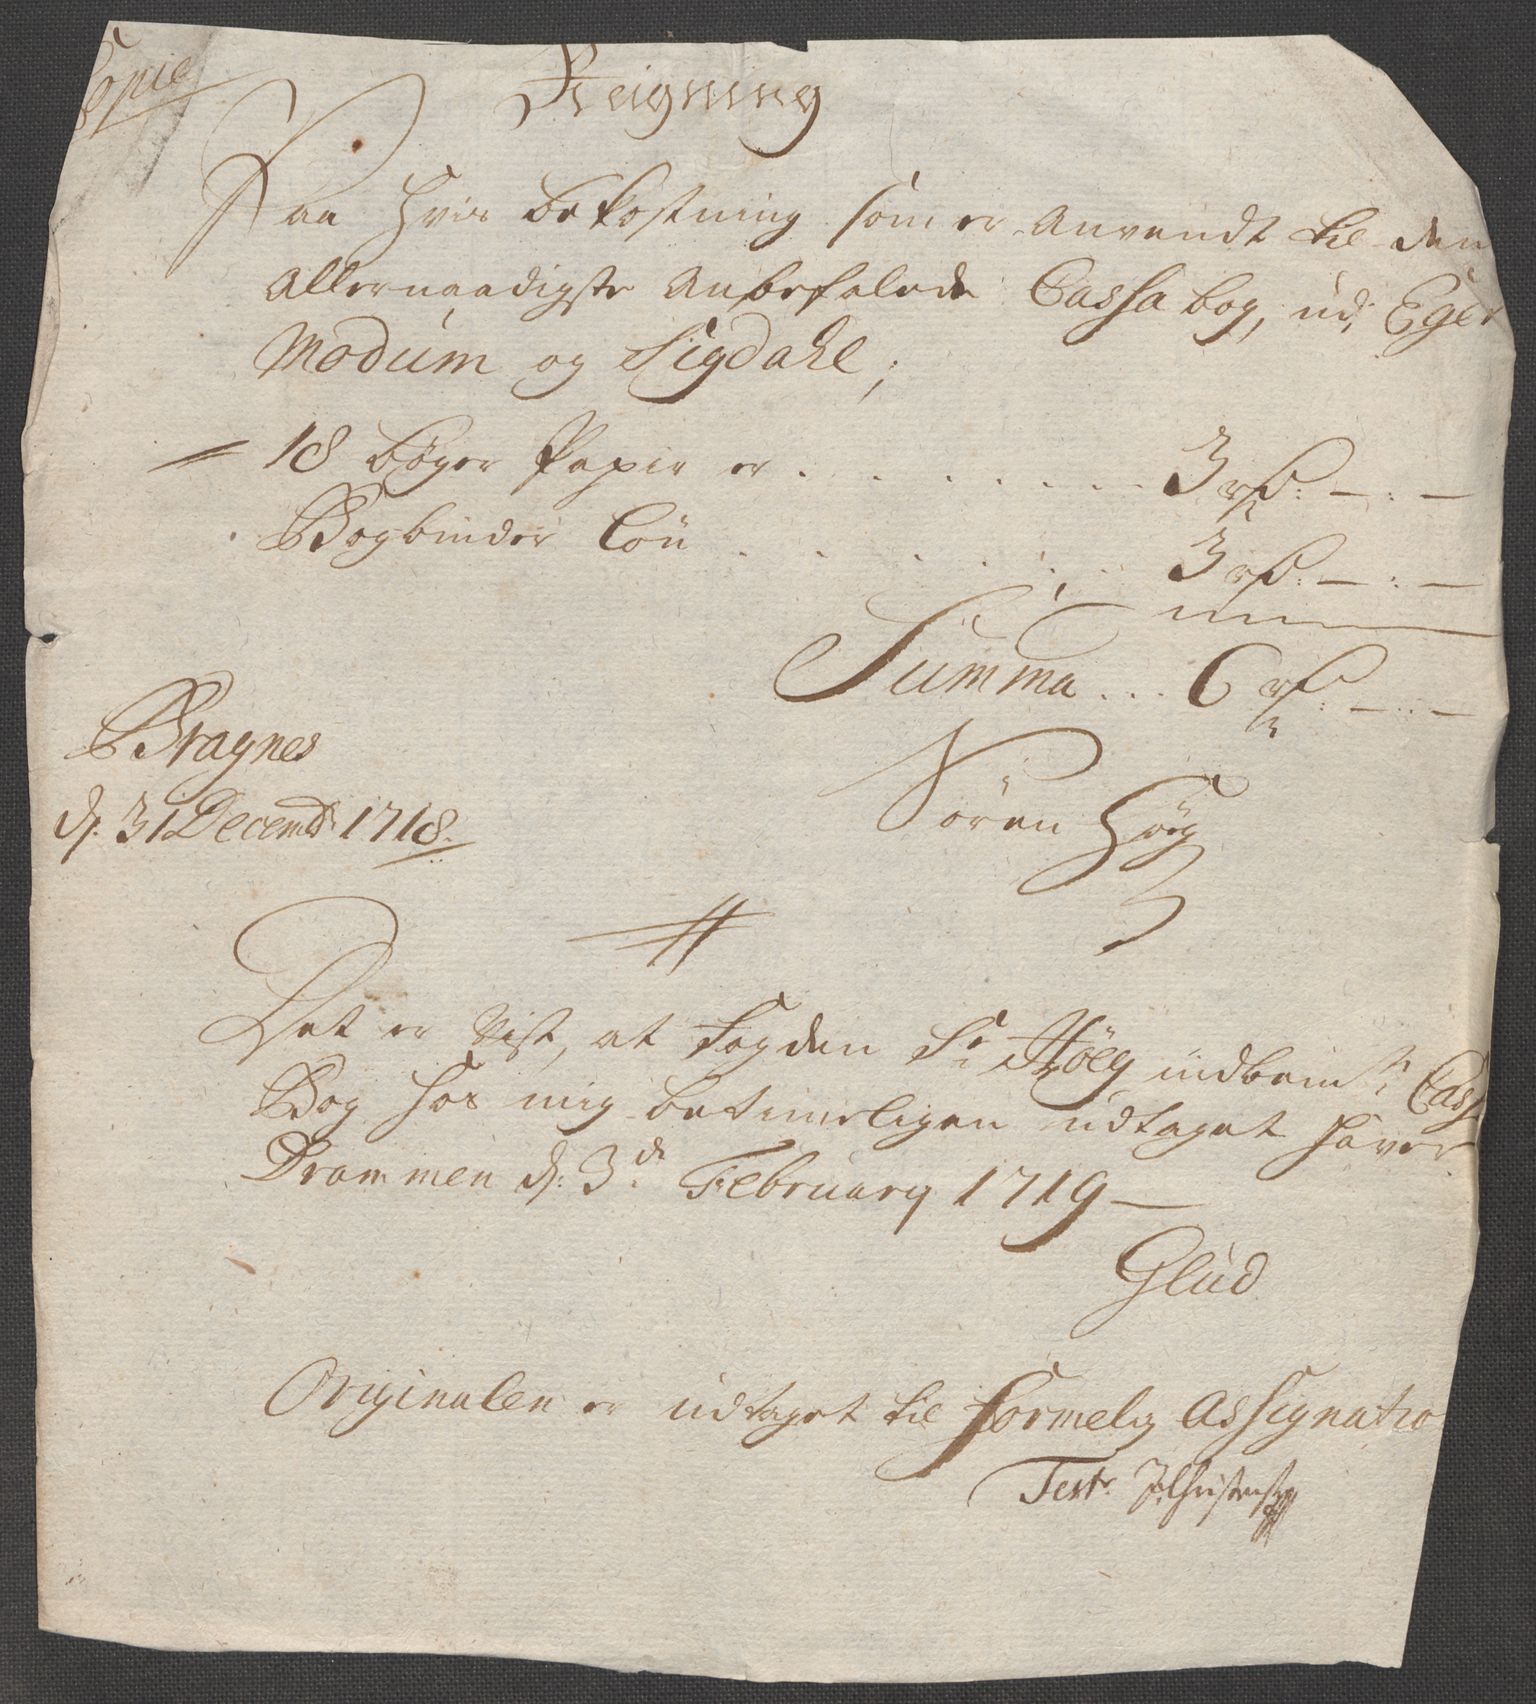 Copie
Reigning
Paa hvis bekostning som er Anvendt til den
Allernaadigste Anbefalede Cassa bog, udi Eger
Modum og Sigdahl;
18 bøger Papir er . . . . . . . . . 3 rd: — : —
Bogbinder Løn . . . . . . . 3 rd: — : —
Summa . . . 6 rd: — : —
Bragnes
d. 31 Decembr 1718.
Søren Høeg
Det er vist, at Fogden Sr Høeg indbemte Cassa
Bog hos mig betimeligen udtaget haver
Drammen d: 3de February 1719 —
Glud
Originalen er udtaget til formelig Assignatio
Test. J. Christensen